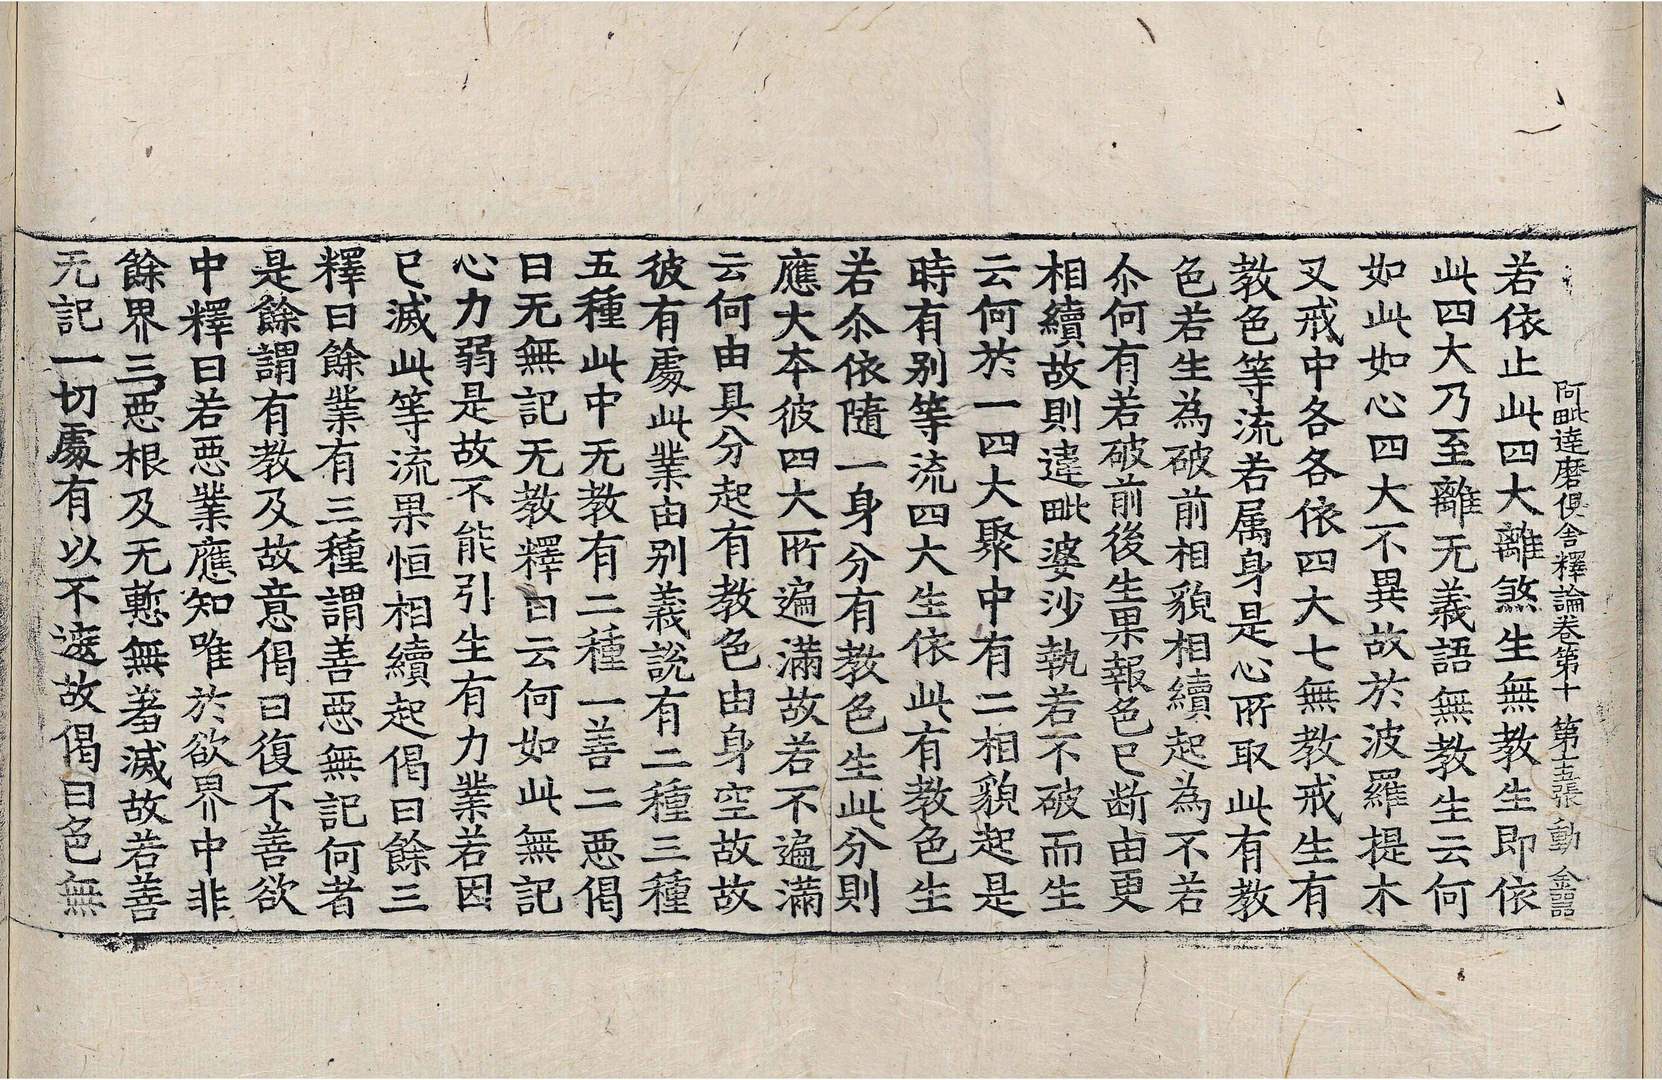 阿毗達磨俱舍釋論卷第十 第十五張 動 金諮
若依止此四大離煞生無教生即依
此四大乃至離无義語無教生云何
如此如心四大不異故於波羅提木
叉戒中各各依四大七無教戒生有
教色等流若属身是心所取此有教
色若生為破前相貌相續起為不若
尒何有若破前後生果報色已断由更
相續故則違毗婆沙執若不破而生
云何於一四大聚中有二相貌起是
時有别等流四大生依此有教色生
若尒依隨一身分有教色生此分則
應大本彼四大所遍滿故若不遍滿
云何由具分起有教色由身空故故
彼有處此業由别義說有二種三種
五種此中无教有二種一善二惡偈
曰无無記无教釋曰云何如此無記
心力弱是故不能引生有力業若因
已滅此等流果恒相續起偈曰餘三
釋曰餘業有三種謂善惡無記何者
是餘謂有教及故意偈曰復不善欲
中釋曰若惡業應知唯於欲界中非
餘界三惡根及无慙無羞滅故若善
无記一切處有以不遮故偈曰色無